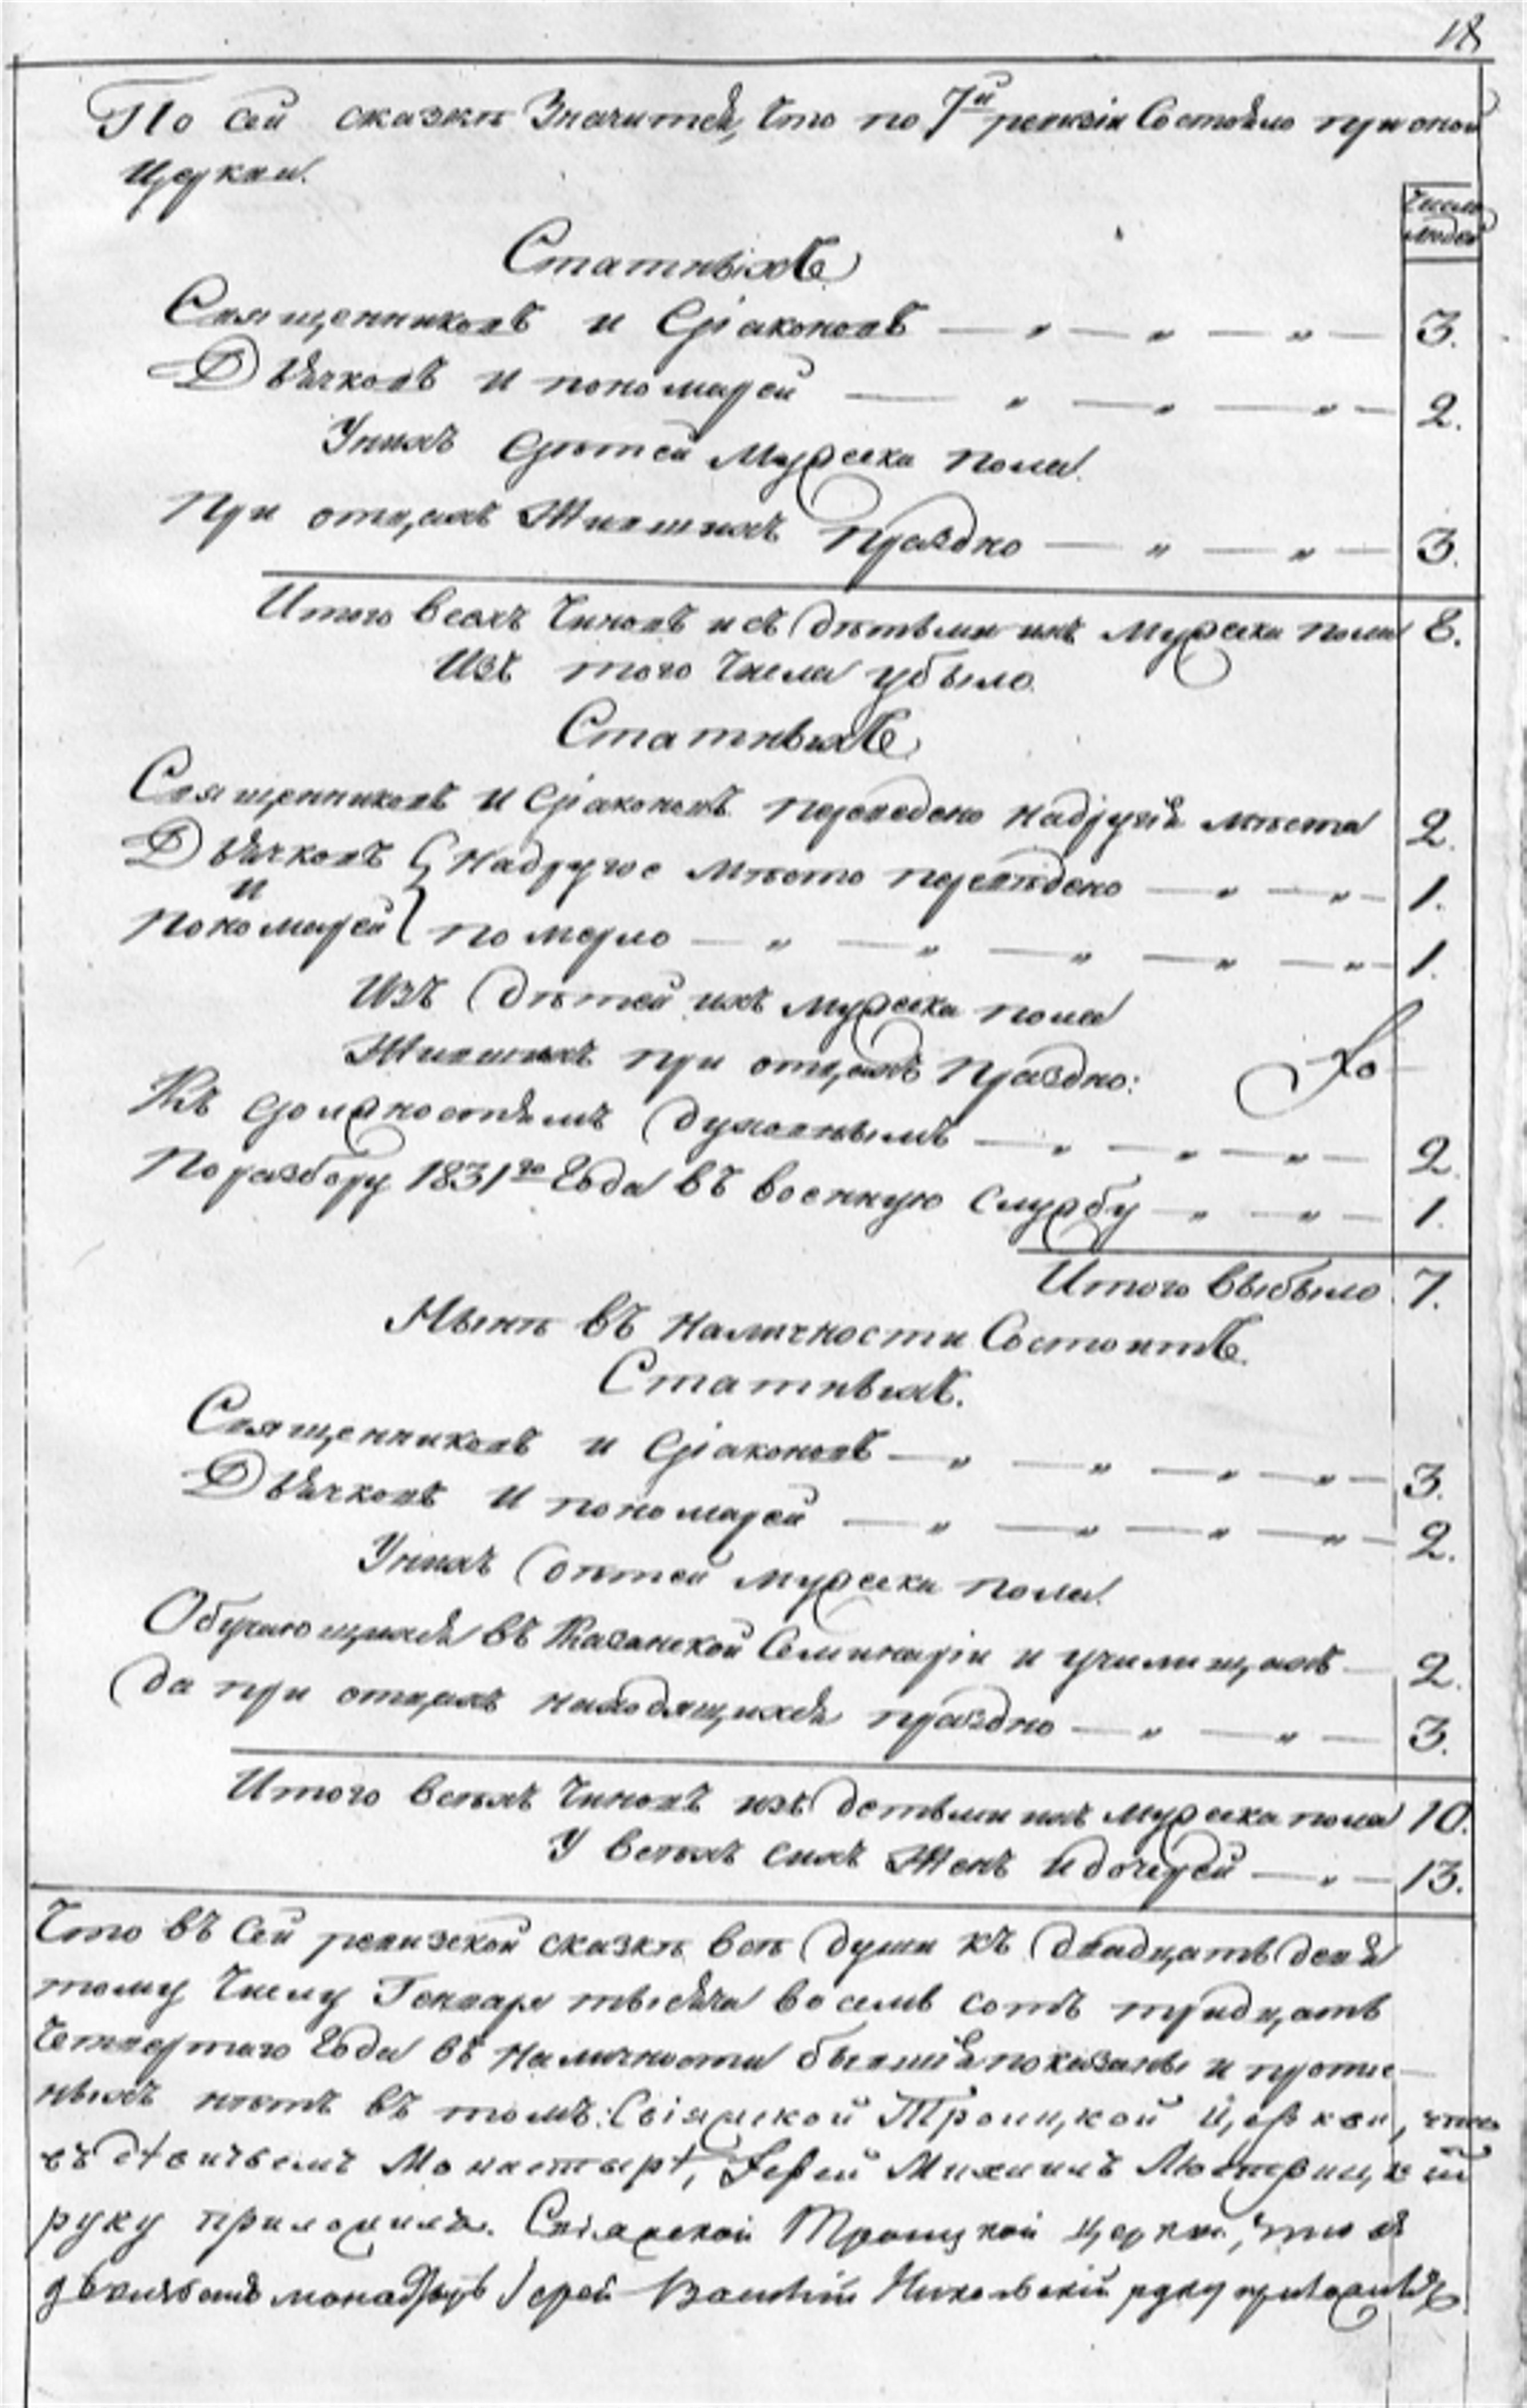 18
По сей сказкѣ Значится, что по 7й ревизіи Состояло при оной
церкви.
Число
людей
Статныхъ
Священниковъ и діаконовъ — „ — „ — „ — 3.
Дьячковъ и пономарей — „ — „ — „ — 2.
У нихъ дѣтей мужеска пола.
При отцахъ Жившихъ праздно — „ — „ — 3.
Итого всехъ Чиновъ и съ дѣтьми ихъ мужеска пола 8.
Изъ того Числа убыло.
Статныхъ
Священниковъ и діаконовъ переведено на другія мѣста 2.
Дьячковъ { На другое мѣсто переведено — „ — „ — 1.
и
пономарей } померло — „ — „ — „ — „ — „ — 1.
Изъ дѣтей ихъ мужеска пола
Жившихъ при отцахъ праздно:
Къ должностямъ духовнымъ — „ — „ — „ — 2.
По разбору 1831го Года въ военную службу — „ — „ — 1.
Итого выбыло 7.
Нынѣ въ наличности Состоитъ.
Статныхъ.
Священниковъ и діаконовъ — „ — „ — „ — „ — 3.
Дьячковъ и пономарей — „ — „ — „ — „ — 2.
У нихъ дѣтей мужеска пола.
Обучающихся въ Казанской Семинаріи и училищахъ — 2.
да при отцахъ находящихся праздно — „ — „ — 3.
Итого всѣхъ Чиновъ изъ детьми ихъ мужеска пола 10.
У всѣхъ сихъ Женъ и дочерей — „ — 13.
Что въ Сей ревизской сказкѣ всѣ души къ двадцать девя
тому Числу Генваря тысяча восемь сотъ тридцать
Четвертаго Года въ наличности бывшія показаны и пропис-
ныхъ нѣтъ въ томъ: Свіяжской Троицкой Церкви, что
въ дѣвичьемъ Монастырѣ, Іерей Михаилъ Люстрицкій
руку приложилъ. Свіяжской Троицкой церкви, что в
дѣвичьемъ монастырѣ Іерей Василій Никольскій руку приложилъ